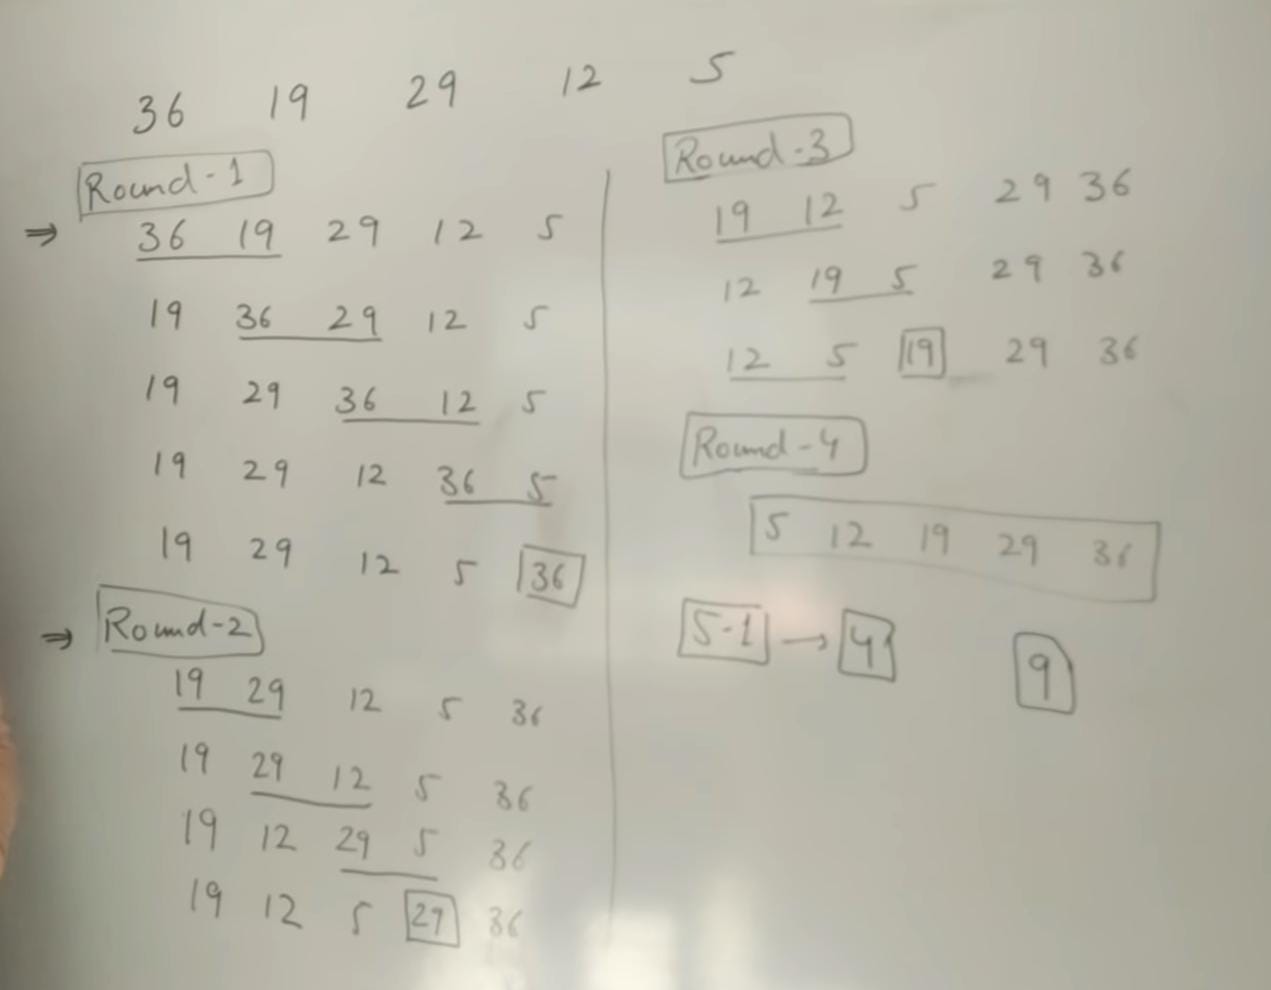 36 19 29 12 5
Round-1
⇒ 36 19 29 12 5
19 36 29 12 5
19 29 36 12 5
19 29 12 36 5
19 29 12 5 36
⇒ Round-2
19 29 12 5 36
19 29 12 5 36
19 12 29 5 36
19 12 5 29 36
Round-3
19 12 5 29 36
12 19 5 29 36
12 5 19 29 36
Round-4
5 12 19 29 36
5-1 → 4 9